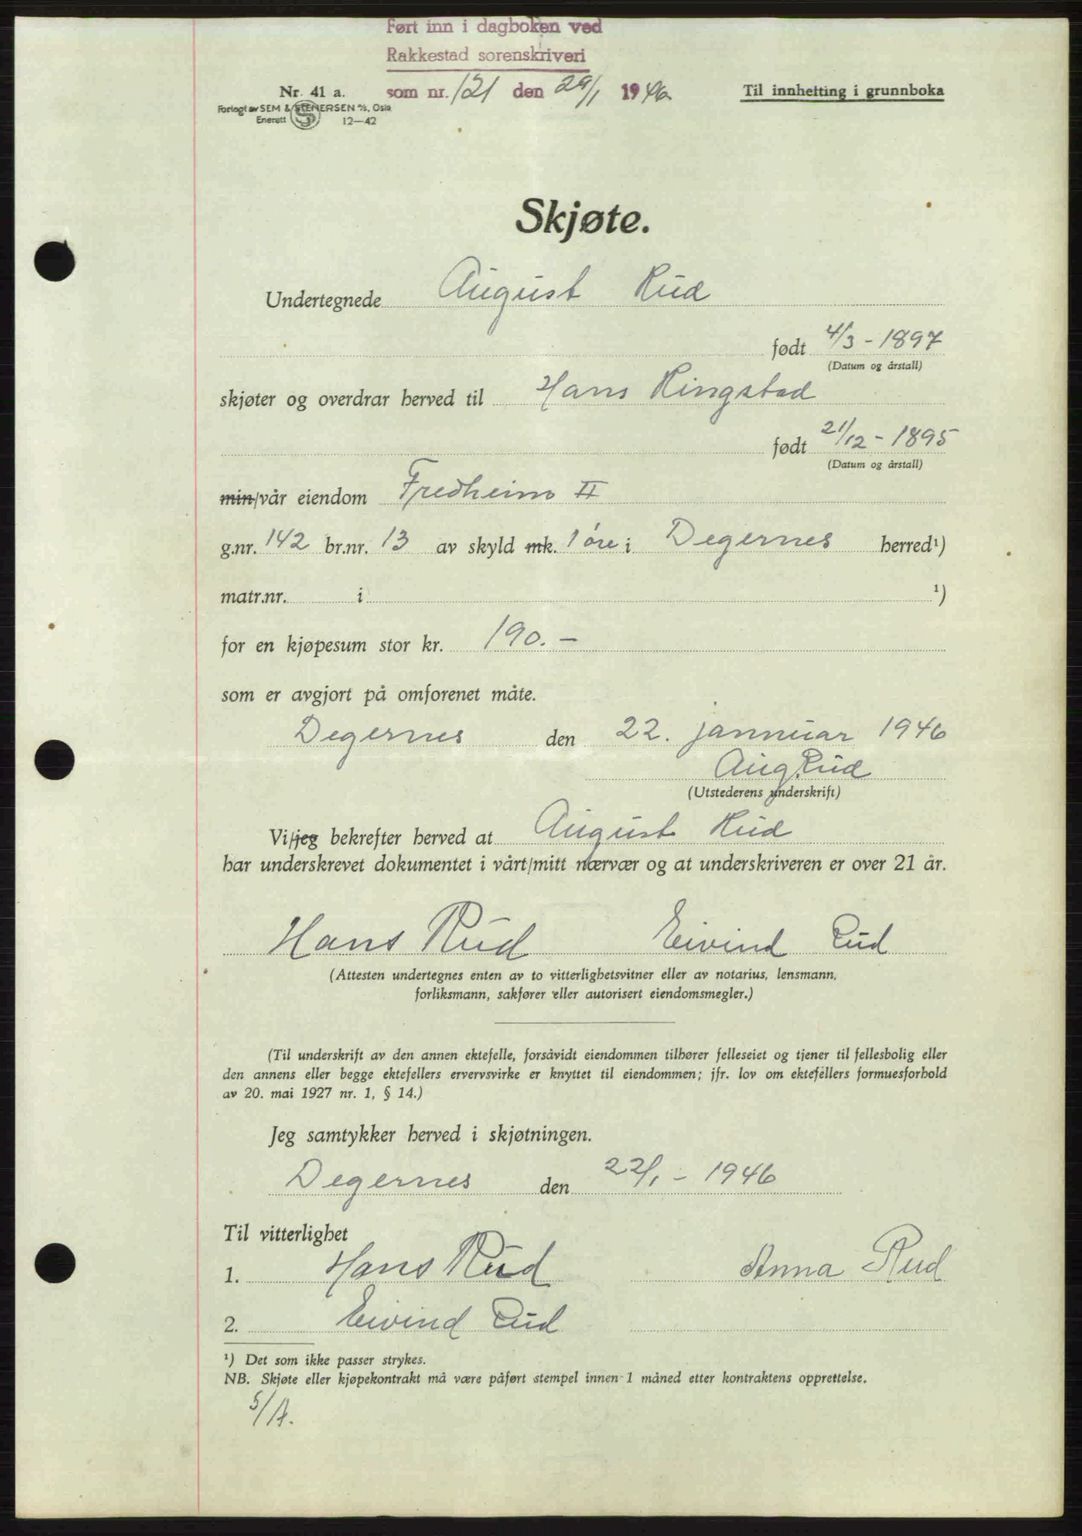 Ført inn i dagboken ved
Rakkestad sorenskriveri
som nr. 121 den 29/1 1946
Nr. 41 a.
Forlagt av SEM & STENERSEN A/S, Oslo
Enerett 12—42
Til innhefting i grunnboka
Skjøte.
Undertegnede August Rud
født 4/3 - 1897
(Datum og årstall)
skjøter og overdrar herved til Hans Ringstad
født 21/12 - 1895
(Datum og årstall)
min/vår eiendom Fredheim II
g.nr. 142 br.nr. 13 av skyld mk. 1 øre i Degernes herred¹)
matr.nr. i ¹)
for en kjøpesum stor kr. 190.-
som er avgjort på omforenet måte.
Degernes den 22. januar 1946
Aug. Rud
(Utstederens underskrift)
Vi/jeg bekrefter herved at August Rud
har underskrevet dokumentet i vårt/mitt nærvær og at underskriveren er over 21 år.
Hans Rud Eivind Rud
(Attesten undertegnes enten av to vitterlighetsvitner eller av notarius, lensmann,
forliksmann, sakfører eller autorisert eiendomsmegler.)
(Til underskrift av den annen ektefelle, forsåvidt eiendommen tilhører felleseiet og tjener til fellesbolig eller
den annens eller begge ektefellers ervervsvirke er knyttet til eiendommen; jfr. lov om ektefellers formuesforhold
av 20. mai 1927 nr. 1, § 14.)
Jeg samtykker herved i skjøtningen.
Degernes den 22/1 - 1946
Til vitterlighet
1. Hans Rud Anna Rud
2. Eivind Rud
¹) Det som ikke passer strykes.
NB. Skjøte eller kjøpekontrakt må være påført stempel innen 1 måned etter kontraktens opprettelse.
5/A.